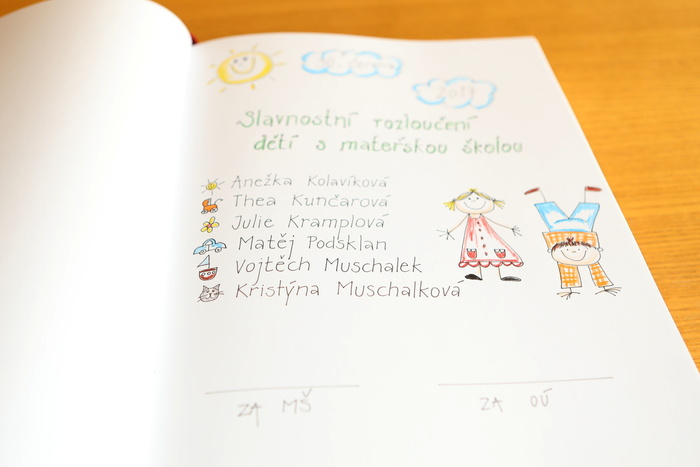 2017
Slavnostní rozloučení
dětí s mateřskou školou
Anežka Kolavíková
Thea Kunčarová
Julie Kramplová
Matěj Podsklan
Vojtěch Muschalek
Kristýna Muschalková
ZA MŠ
ZA OÚ